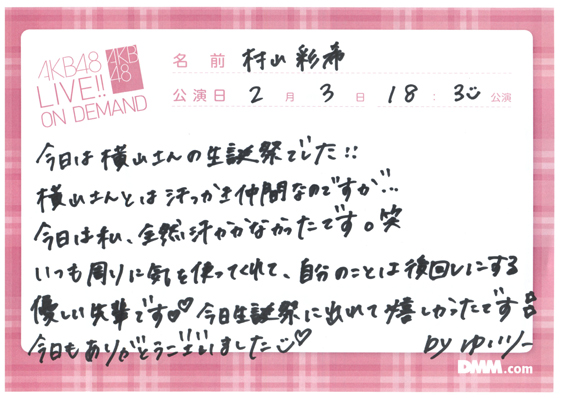 AKB48
LIVE!!
ON DEMAND
AKB
48
名前 村山彩希
公演日 2月3日 18:30公演
今日は横山さんの生誕祭でした!!
横山さんとは汗っかき仲間なのですが…
今日は私、全然汗かかなかったです。笑
いつも周りに気を使ってくれて、自分のことは後回しにする
優しい先輩です♡今日生誕祭に出れて嬉しかったです
今日もありがとうございました♡
by ゆいりー
DMM.com